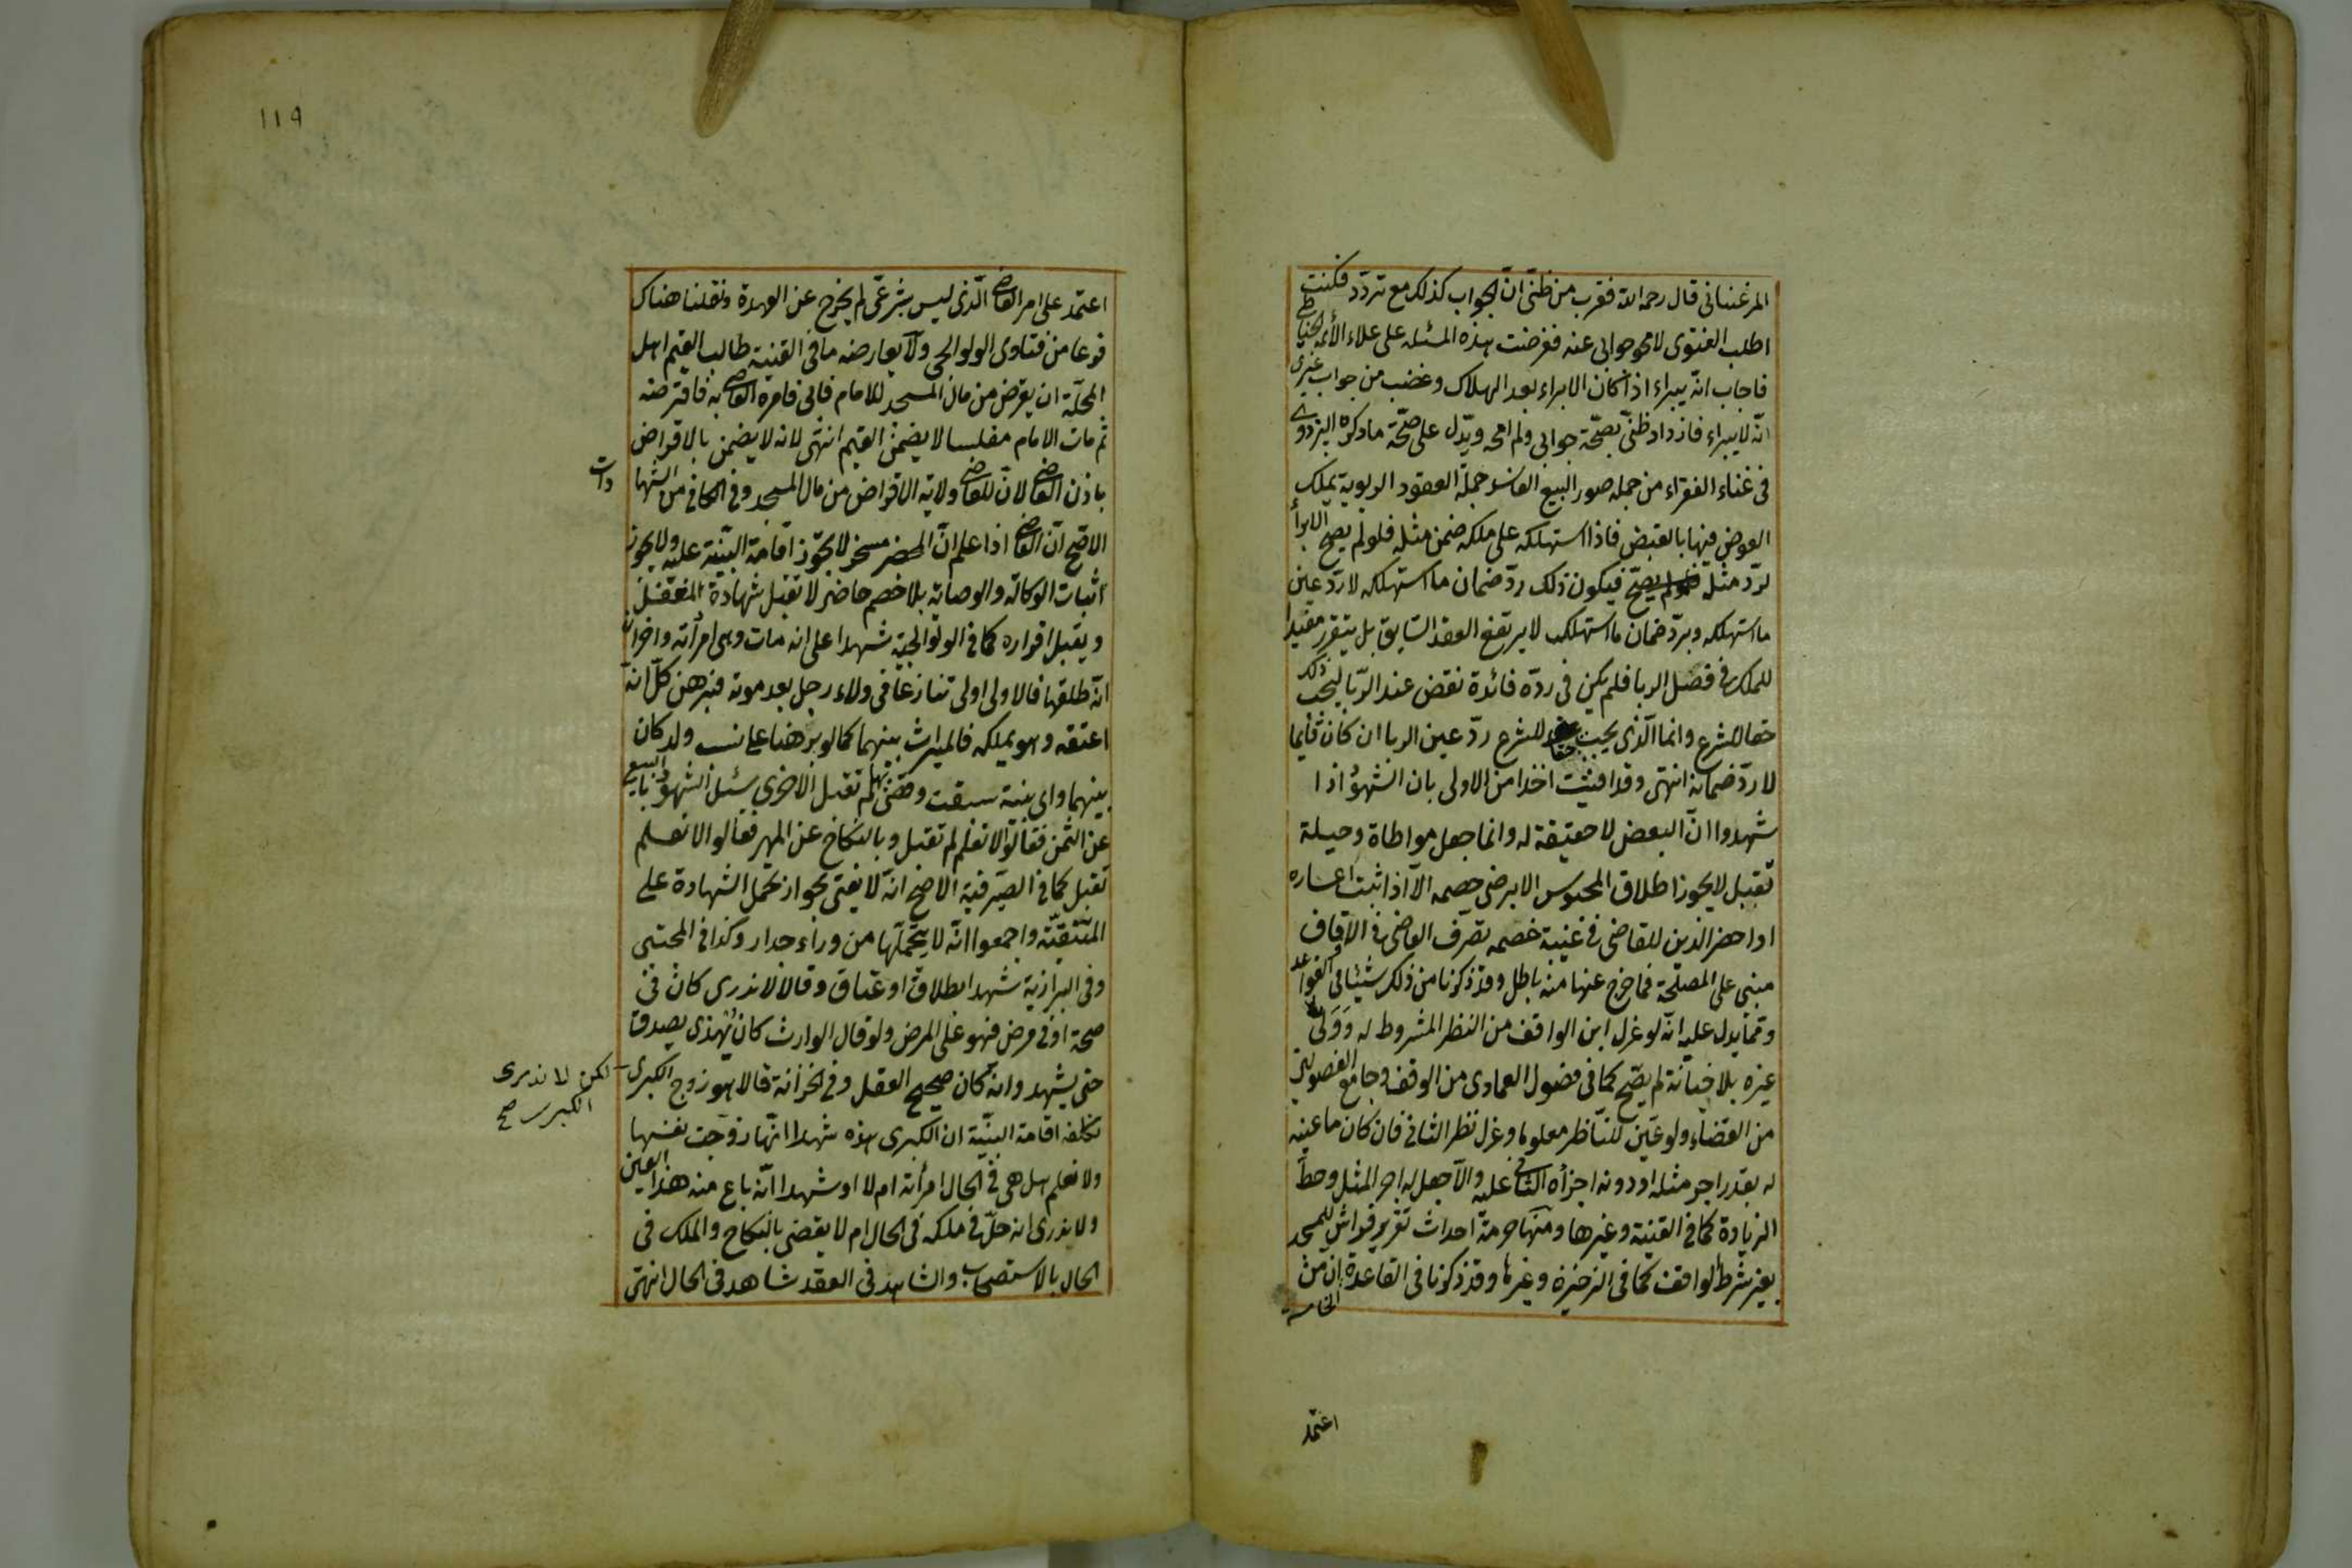 المرغينانى قال رحمه الله فقرب من ظنى ان الجواب كذلك مع تردد فكنت
اطلب الفتوى لامحو جوابى عنه فعرضت هذه المسئله على علاء الأئمة الحناطى
فاجاب انه يبراء اذا كان الابراء بعد الهلاك وغضب من جواب غيرى
انه لا يبراء فازداد ظنى بصحة جوابى ولم امحه ويدل على صحة ما ذكره البزدوى
فى غناء الفقراء من جملة صور البيع الفاسد جملة العقود الربوية يملك
العوض فيها بالقبض فاذا استهلكه على ملكه ضمن مثله فلو لم يصح الابراء
لرد مثله فيكون ذلك رد ضمان ما استهلكه لا رد عين
ما استهلكه وبرد ضمان ما استهلكه لا يرتفع العقد السابق بل يتقرر مفيدا
للملك فى فصل الربا فلم يكن فى رده فائدة نقض عند الربا ليجب ذلك
حقا للشرع وانما الذى يجب حقا للشرع رد عين الربا ان كان قايما
لا رد ضمانه انتهى وقد افتيت اخذا من الاولى بان الشهود اذا
شهدوا ان البعض لا حقيقة له وانما جعل مواطاة وحيلة
تقبل لا يجوز اطلاق المحبوس الا برضى خصمه الا اذا ثبت اعساره
او احضر الدين للقاضى فى غيبة خصمه تصرف القاضى فى الاوقاف
مبنى على المصلحة فما خرج عنها منه باطل وقد ذكرنا من ذلك شيئا فى القواعد
ومما يدل عليه انه لو عزل ابن الواقف من النظر المشروط له وولى
غيره بلا خيانة لم يصح كما فى فصول العمادى من الوقف وجامع الفصولين
من القضاء ولو عين للناظر معلوما وعزل نظر الثانى فان كان ما عينه
له بقدر اجر مثله او دونه اجراه الثانى عليه والا جعل له اجر المثل وحط
الزيادة كما فى القنية وغيرها ومنها حرمة احداث تقرير فراش للمسجد
بغير شرط الواقف كما فى الذخيرة وغيرها وقد ذكرنا فى القاعدة الخامسة ان من
اعتمد
١١٩
اعتمد على امر القاضى الذى ليس بشرعى لم يخرج عن العهدة ونقلنا هناك
فرعا من فتاوى الولوالجى ولا يعارضه ما فى القنية طالب القيم اهل
المحلة ان يقرض من مال المسجد للامام فابى فامره القاضى به فاقرضه
ثم مات الامام مفلسا لا يضمن القيم انتهى لانه لا يضمن بالاقراض
باذن القاضى لان للقاضى ولاية الاقراض من مال المسجد وفى الكافى من الشهادات
الاصح ان القاضى اذا علم ان المحضر مسخر لا يجوز اقامة البينة عليه ولا يجوز
اثبات الوكالة والوصاية بلا خصم حاضر لا تقبل شهادة المغفل
ويقبل اقراره كما فى الولوالجية شهدا على انه مات وهى امرأته واخران
انه طلقها فالاولى اولى تنازعا فى ولاء رجل بعد موته فبرهن كل انه
اعتقه وهو يملكه فالميراث بينهما كما لو برهنا على نسب ولد كان
بينهما واى بينة سبقت وقضى بها لم تقبل الاخرى سئل الشهود بالبيع
عن الثمن فقالوا لا نعلم لم تقبل وبالنكاح عن المهر فقالوا لا نعلم
تقبل كما فى الصيرفية الاصح انه لا يفتى بجواز تحمل الشهادة على
المتنقبة واجمعوا انه لا يتحملها من وراء جدار وكذا فى المجتبى
وفى البزازية شهدا بطلاق او عتاق وقالا لا ندرى كان فى
صحة او فى مرض فهو على المرض ولو قال الوارث كان يهذى يصدق
حتى يشهد وانه كان صحيح العقل وفى الخزانة قالا هو زوج الكبرى
لكن لا ندرى
الكبرى صح
نكلفه اقامة البينة ان الكبرى هذه شهدا انها زوجت نفسها
ولا نعلم هل هى فى الحال امرأته ام لا او شهدا انه باع منه هذا العين
ولا ندرى انه حل فى ملكه فى الحال ام لا يقضى بالنكاح والملك فى
الحال بالاستصحاب والشاهد فى العقد شاهد فى الحال انتهى